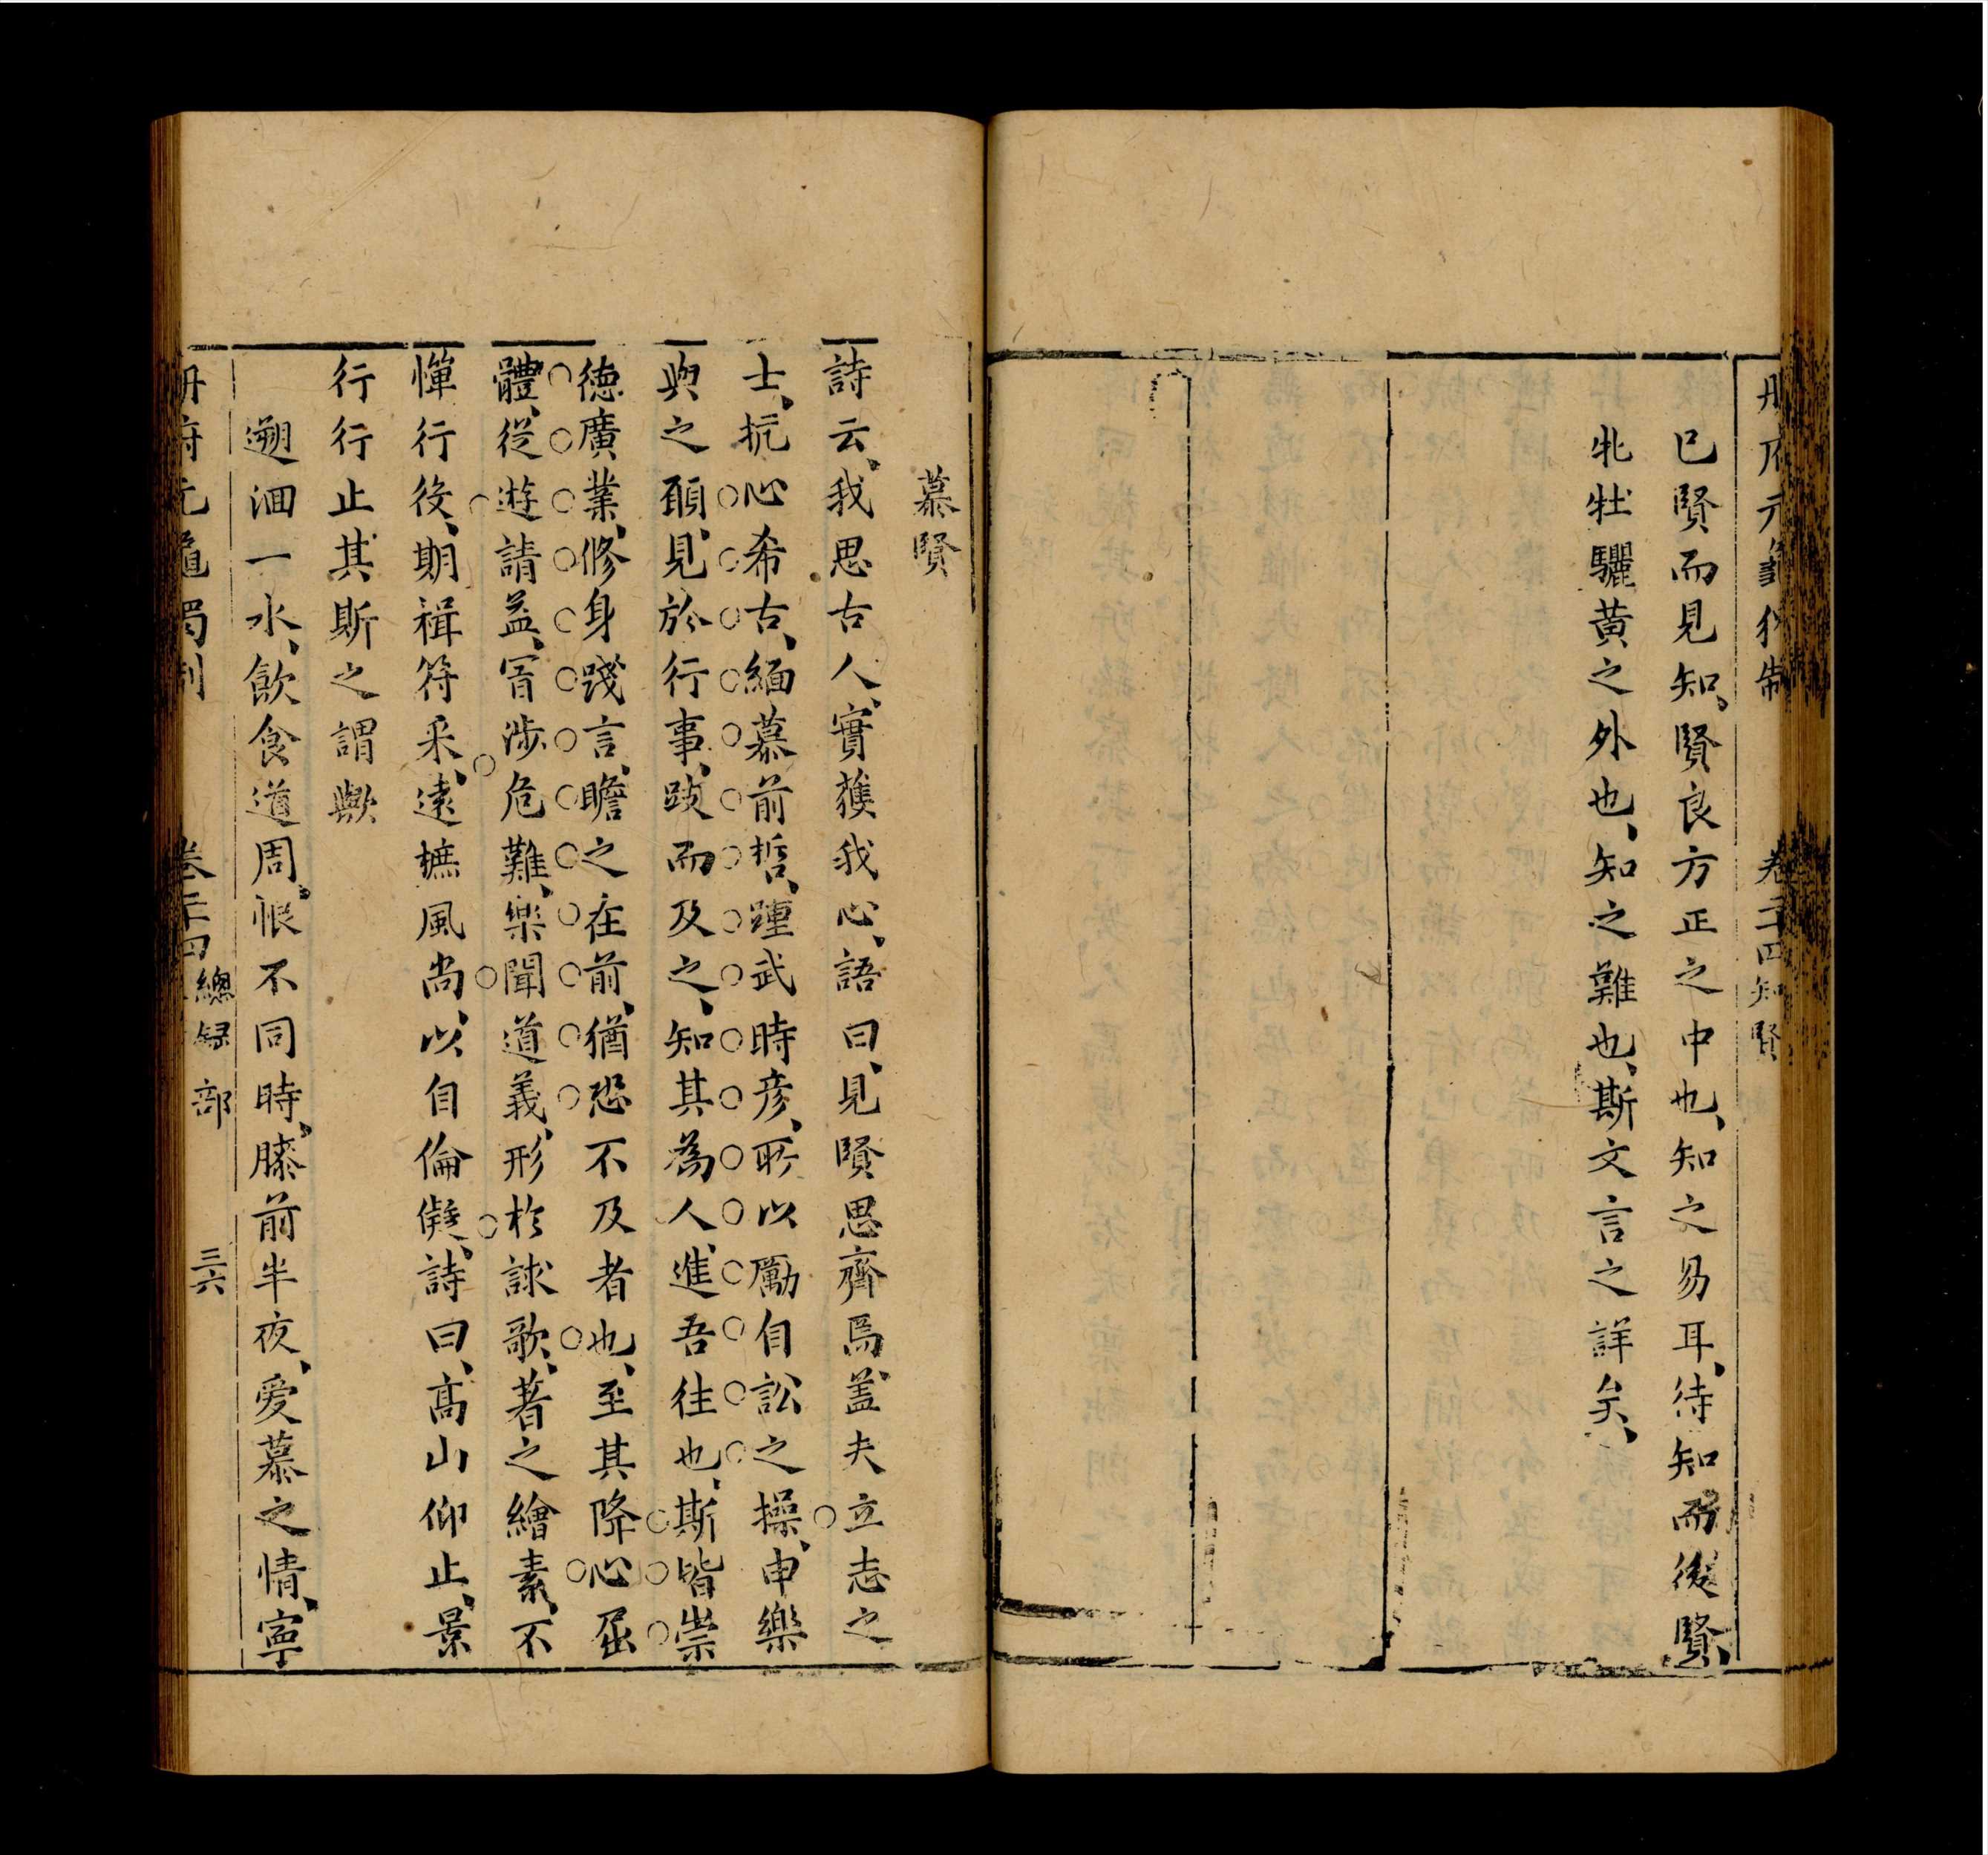 冊府元龜獨制　卷二十四　知賢
已賢而見知、賢良方正之中也、知之易耳、待知而後賢、
牝牡驪黃之外也、知之難也、斯文言之詳矣、
慕賢
詩云、我思古人、實獲我心、語曰、見賢思齊焉、蓋夫立志之
士、抗心希古、緬慕前哲、踵武時彥、所以勵自訟之操、申樂
與之願、見於行事、跂而及之、知其為人、進吾往也、斯皆崇
德廣業、修身踐言、瞻之在前、猶恐不及者也、至其降心屈
體、從遊請益、罟涉危難、樂聞道義、形於詠歌、著之繪素、不
憚行役、期緝符采、遠摭風尚、以自倫儗、詩曰、高山仰止、景
行行止其斯之謂歟
遡洄一水、飲食道周、恨不同時、膝前半夜、愛慕之情、寧
冊府元龜獨制　卷二十四　總録部　三六